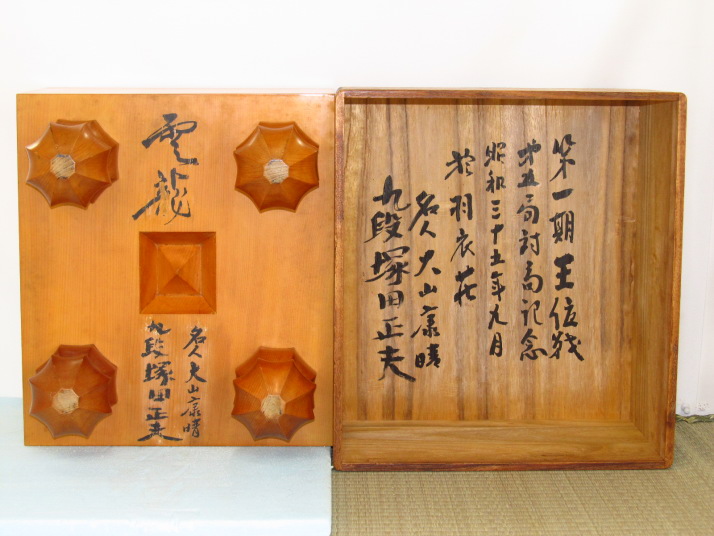 雲龍
名人大山康晴
九段塚田正夫
第一期王位戦
第五局対局記念
昭和三十五年九月
於羽衣荘
名人大山康晴
九段塚田正夫